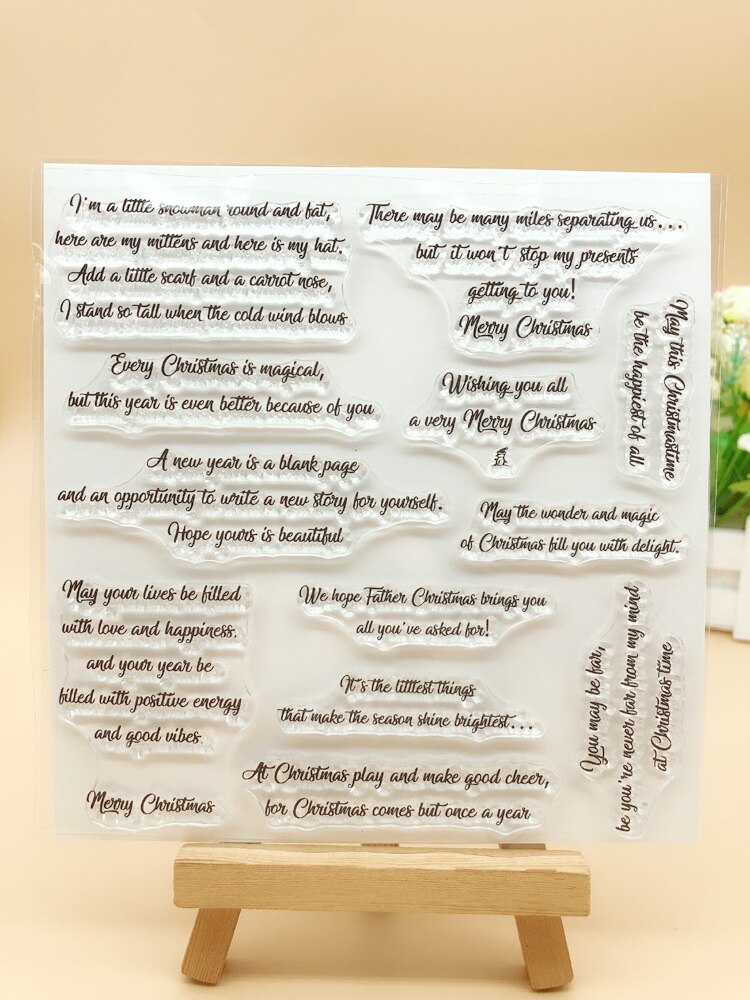 I'm a little snowman round and fat,
here are my mittens and here is my hat.
Add a little scarf and a carrot nose,
I stand so tall when the cold wind blows
There may be many miles separating us...
but it won't stop my presents
getting to you!
Merry Christmas
May this Christmastime
be the happiest of all
Every Christmas is magical,
but this year is even better because of you
Wishing you all
a very Merry Christmas
A new year is a blank page
and an opportunity to write a new story for yourself.
Hope yours is beautiful
May the wonder and magic
of Christmas fill you with delight.
May your lives be filled
with love and happiness.
and your year be
filled with positive energy
and good vibes
We hope Father Christmas brings you
all you've asked for!
You may be far,
be you're never far from my mind
at Christmas time
It's the littlest things
that make the season shine brightest...
Merry Christmas
At Christmas play and make good cheer,
for Christmas comes but once a year